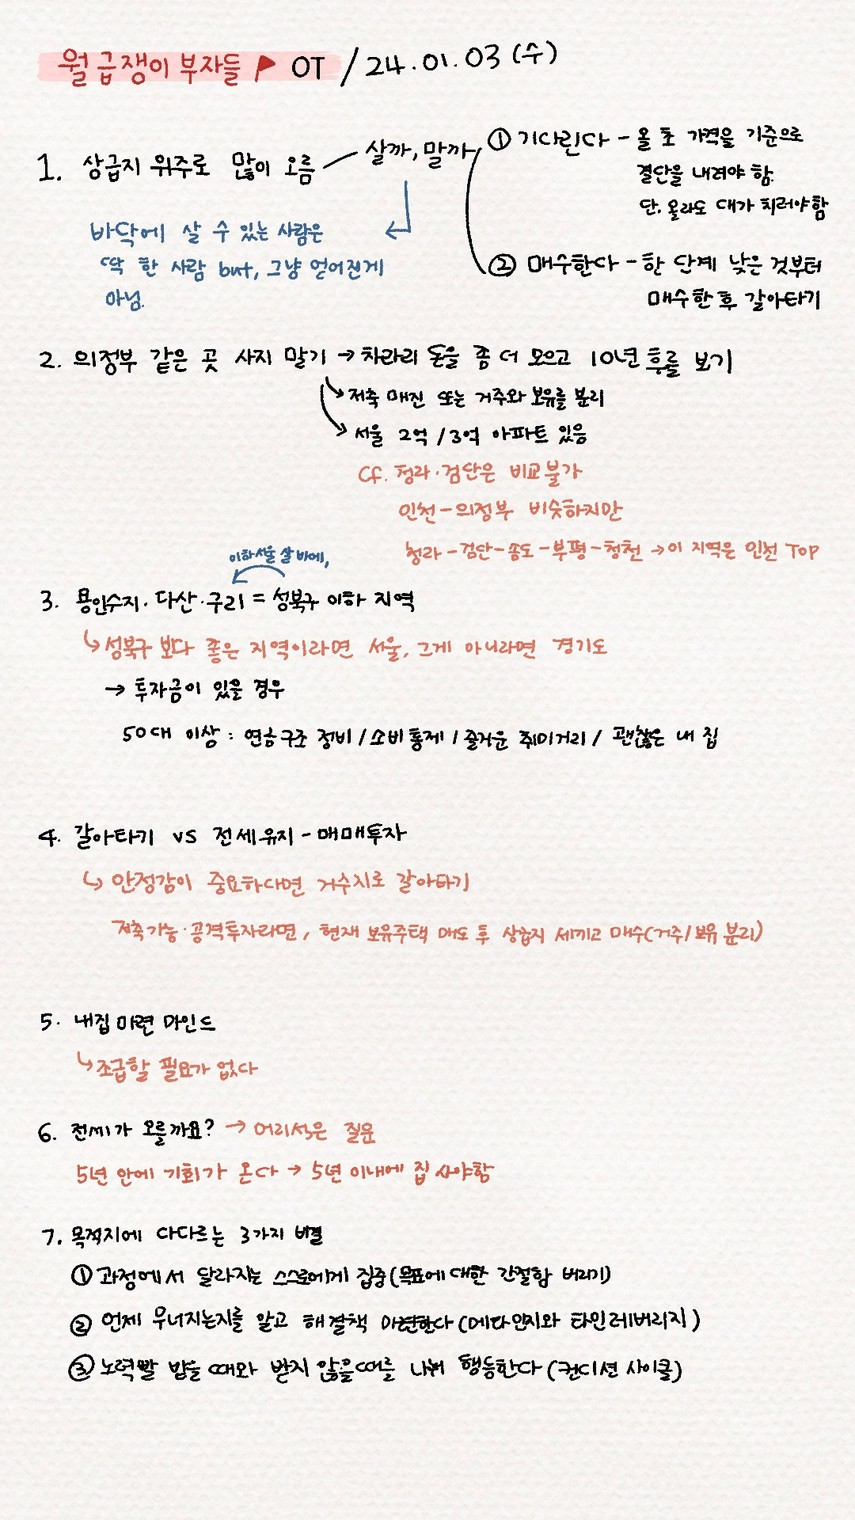 월급쟁이 부자들 ▶ OT / 24.01.03 (수)
1. 상급지 위주로 많이 오름 — 살까, 말까
① 기다린다 - 올 초 가격을 기준으로
결단을 내려야 함.
단, 올라도 대가 치러야 함
바닥에 살 수 있는 사람은
딱 한 사람 but, 그냥 얻어진게
아님.
② 매수한다 - 한 단계 낮은 것부터
매수한 후 갈아타기
2. 의정부 같은 곳 사지 말기 → 차라리 돈을 좀 더 모으고 10년 후를 보기
↳ 저축 매진 또는 거주와 보유를 분리
↳ 서울 2억 / 3억 아파트 있음
cf. 청라·검단은 비교불가
인천 - 의정부 비슷하지만
청라 - 검단 - 송도 - 부평 - 청천 → 이 지역은 인천 TOP
이하 서울 살 바에,
3. 용인수지·다산·구리 = 성북구 이하 지역
↳ 성북구 보다 좋은 지역이라면 서울, 그게 아니라면 경기도
→ 투자금이 있을 경우
50대 이상 : 연금구조 정비 / 소비통제 / 즐거운 취미거리 / 괜찮은 내 집
4. 갈아타기 vs 전세유지 - 매매투자
↳ 안정감이 중요하다면 거주지로 갈아타기
저축가능·공격투자라면, 현재 보유주택 매도 후 상급지 세끼고 매수(거주/보유 분리)
5. 내집 마련 마인드
↳ 조급할 필요가 없다
6. 전세가 오를까요? → 어리석은 질문
5년 안에 기회가 온다 → 5년 이내에 집 사야함
7. 목적지에 다다르는 3가지 비결
① 과정에서 달라지는 스스로에게 집중 (목표에 대한 간절함 버리기)
② 언제 무너지는지를 알고 해결책 마련한다 (메타인지와 타인 레버리지)
③ 노력빨 받을 때와 받지 않을 때를 나눠 행동한다 (컨디션 사이클)